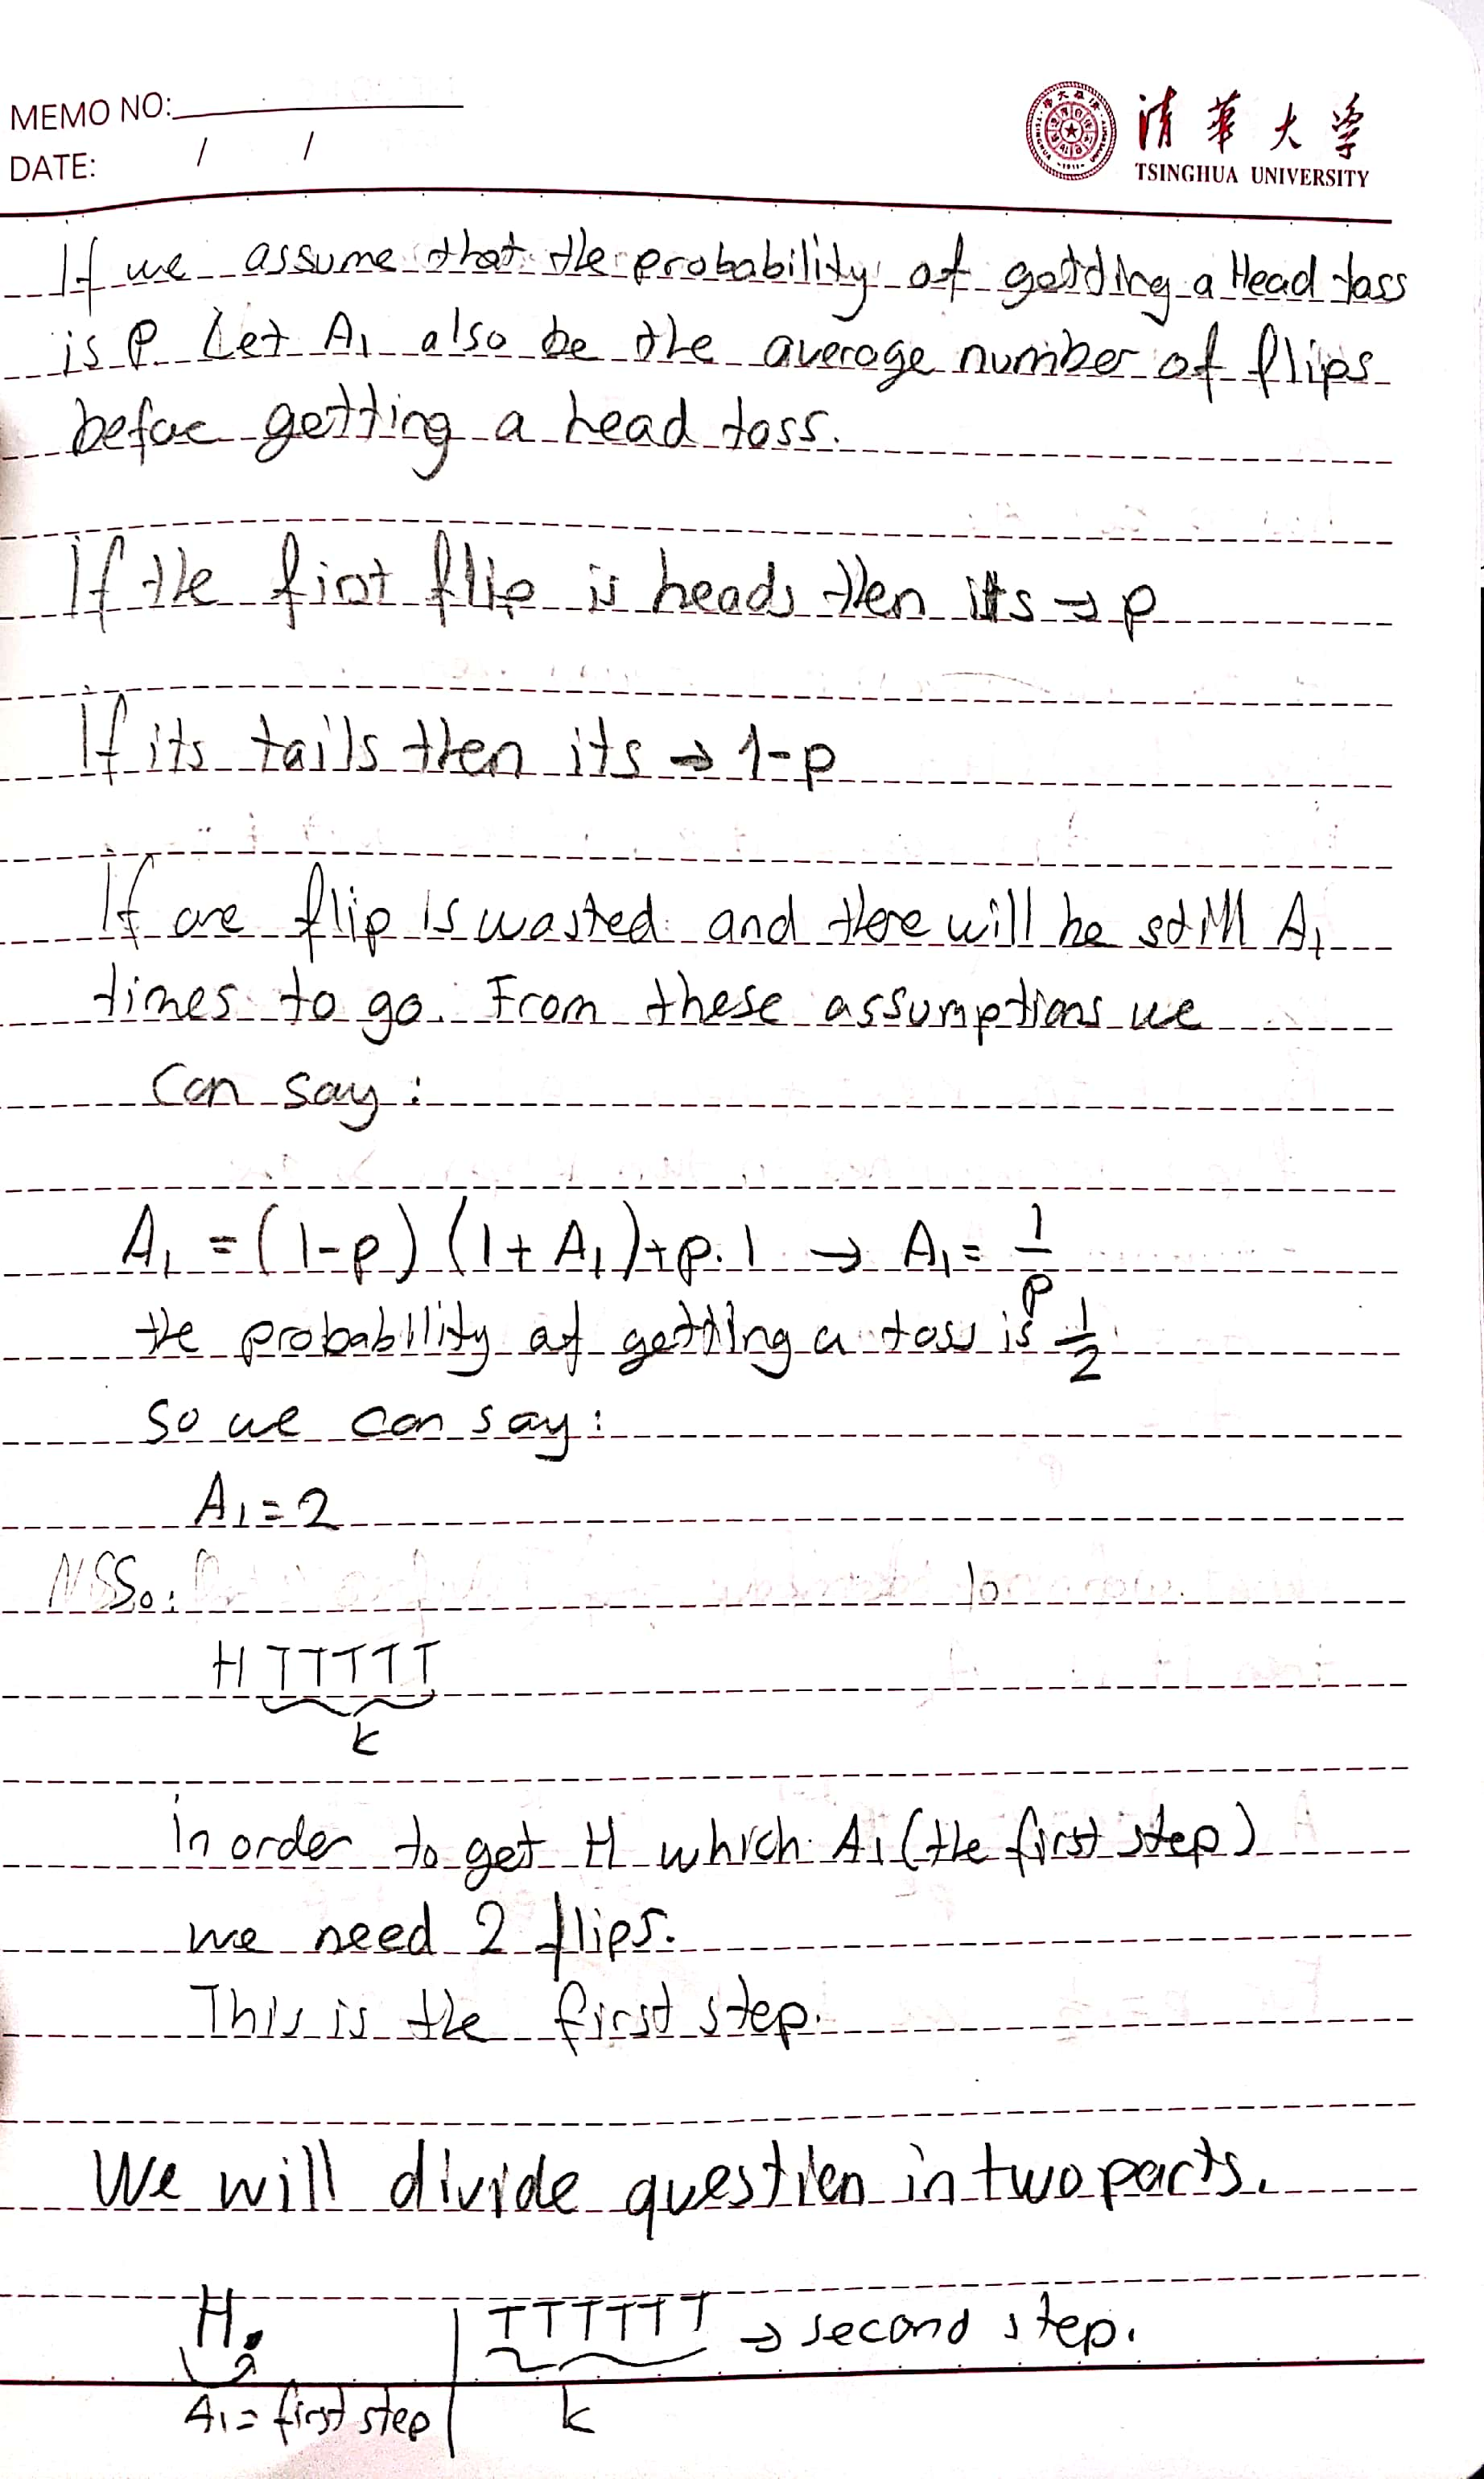 MEMO NO:
DATE: / /
清華大学
TSINGHUA UNIVERSITY
If we assume that the probability of getting a Head toss
is P. Let A1 also be the average number of flips
befoe getting a head toss.
If the first flip is heads then its → p
If its tails then its → 1-p
If one flip is wasted and there will be still A1
times to go. From these assumptions we
can say:
A1 = (1-p) (1+A1)+p.1 → A1 = 1/p
the probability of getting a toss is 1/2
so we can say:
A1=2
So:
H TTTTT
k
in order to get H which A1 (the first step)
we need 2 flips.
This is the first step.
We will divide question in two parts.
H. | TTTTTT → second step.
A1= first step | k